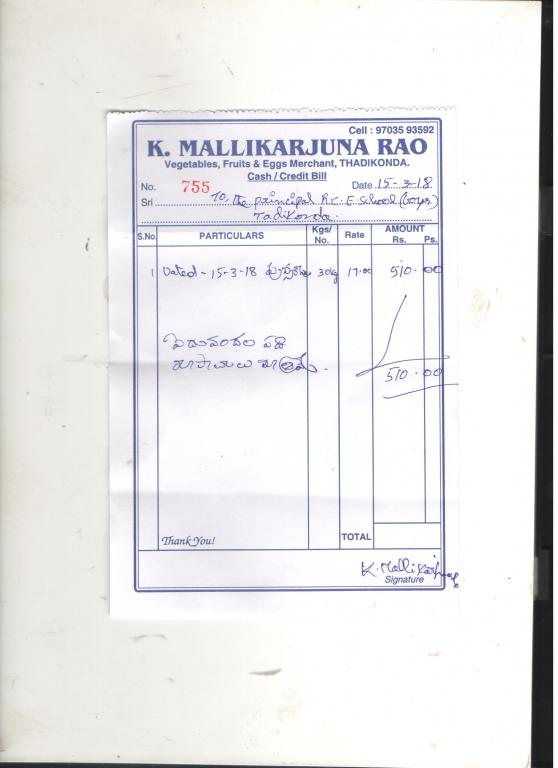 Cell : 97035 93592
K. MALLIKARJUNA RAO
Vegetables, Fruits & Eggs Merchant, THADIKONDA.
Cash / Credit Bill
No. 755 Date 15-3-18
Sri To, the principal School (Boys)
Tadikonda.
S.No. PARTICULARS Kgs/ No. Rate AMOUNT Rs. Ps.
1 Dated - 15-3-18 30kg 17.00 510.00
ఐదువందల పది
రూపాయలు మాత్రమే
510.00
Thank You! TOTAL
K. Mallikarjuna
Signature